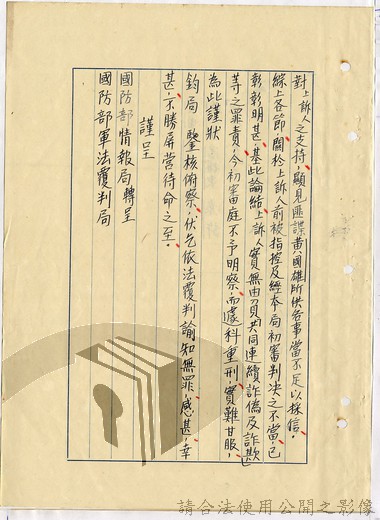 對上訴人之支持，顯見匪諜黃國雄所供各事當不足以採信。
綜上各節，關於上訴人前被指控及經本局初審判決之不當，已
彰彰明甚，基此論結上訴人實無由負共同連續詐偽及詐欺
等之罪責，今初審庭不予明察，而遽科重刑，實難甘服，
為此謹狀
鈞局　鑒核俯察，伏乞依法覆判諭知無罪，感甚，幸
甚，不勝屏營待命之至。
謹呈
國防部情報局轉呈
國防部軍法覆判局
請合法使用公開之影像